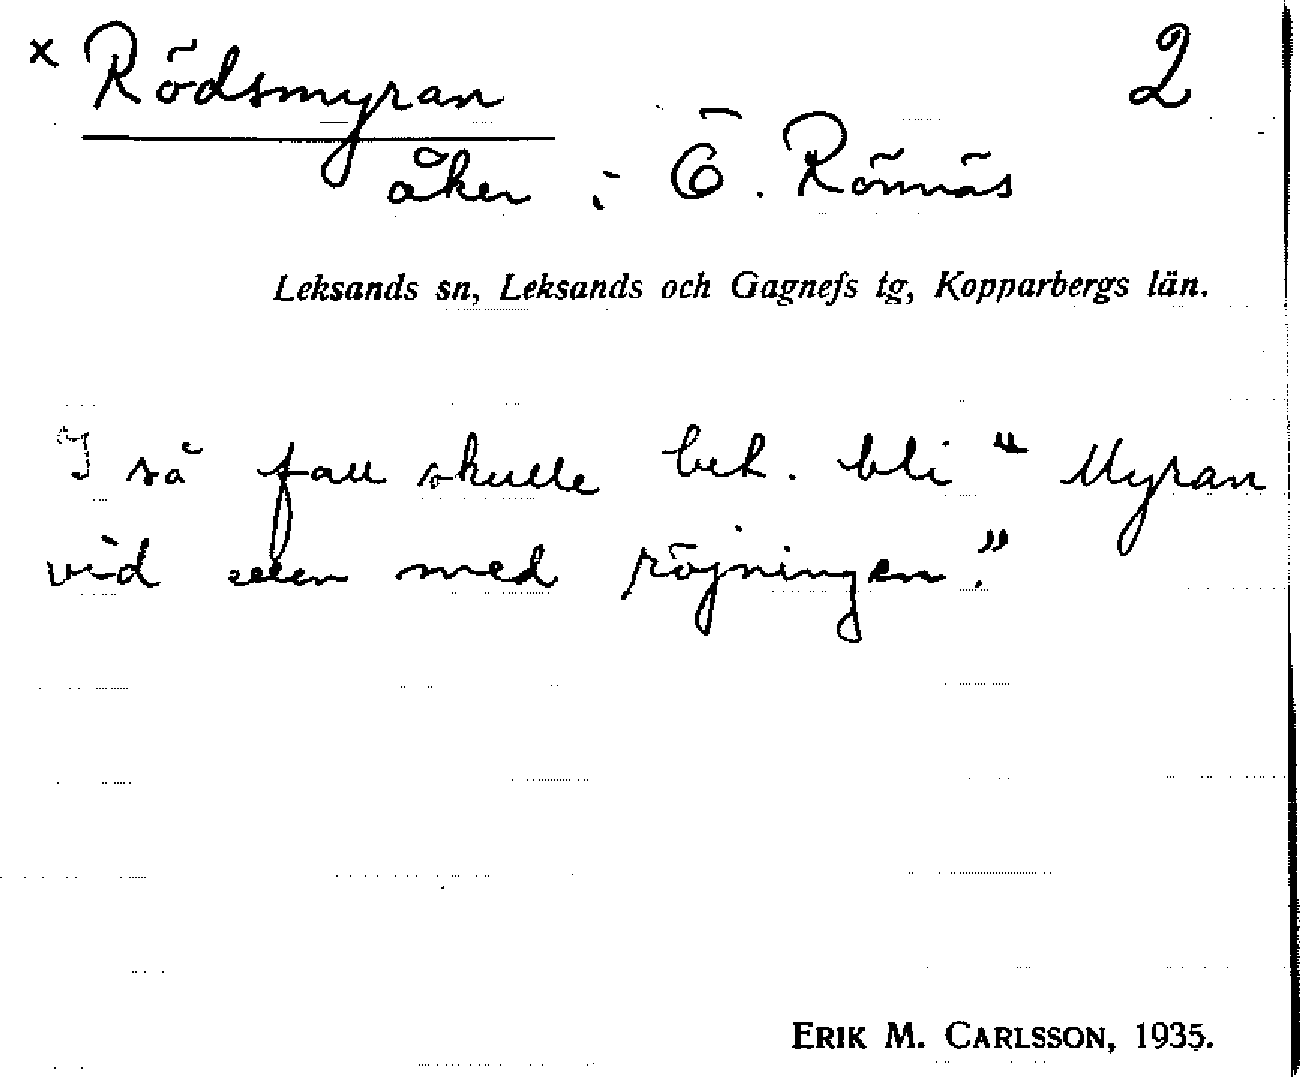 x Rödsmyran 2
åker i Ö. Rönnäs
Leksands sn, Leksands och Gagnefs tg, Kopparbergs län.
I så fall skulle bet. bli "Myran
vid elen med röjningen."
ERIK M. CARLSSON, 1935.